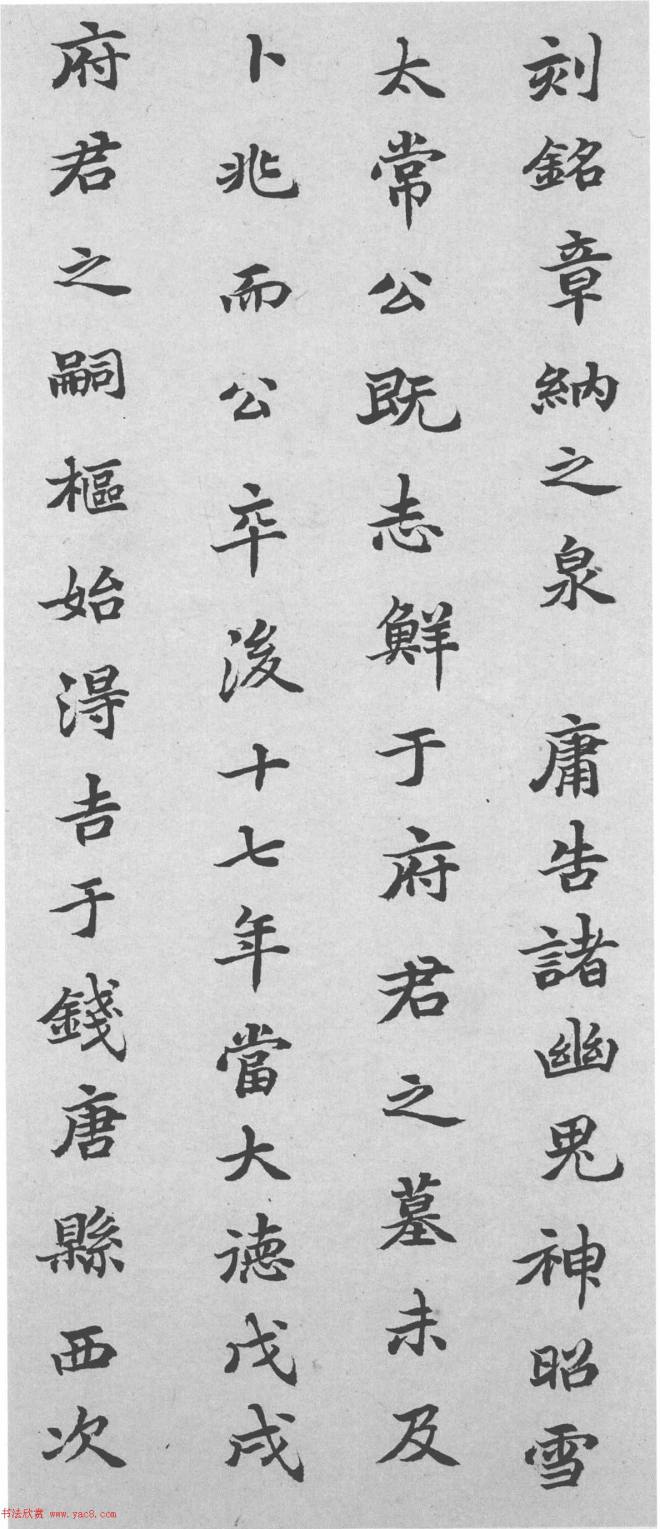 刻銘章納之泉 庸告諸幽鬼神昭雪
太常公既志鮮于府君之墓未及
卜兆而公卒後十七年當大德戊戌
府君之嗣樞始得吉于錢唐縣西次
书法欣赏 www.yac8.com